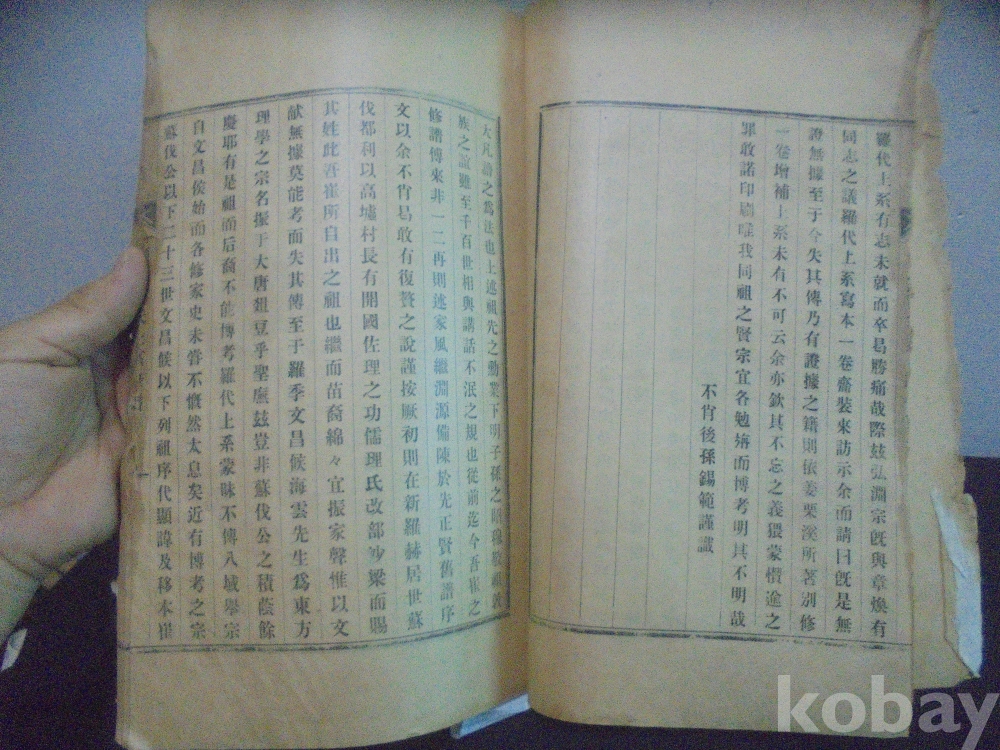 羅代上系有志未就而卒曷勝痛哉際玆弘淵宗旣與章煥有
同志之議羅代上系寫本一卷齋裝來訪示余而請曰旣是無
證無據至于今失其傳乃有證據之籍則依姜栗溪所著別修
一卷增補上系未有不可云余亦欽其不忘之義猥蒙僭逾之
罪敢諾印刷唯我同祖之賢宗宜各勉旃而博考明其不明哉
不肯後孫錫範謹識
大凡譜之爲法也上述祖先之勳業下明子孫之昭穆
族之誼雖至千百世相與講話不泯之規也從前迄今吾崔之
修譜傳來非一二再則述家風繼淵源備陳於先正賢舊譜序
文以余不肯曷敢有復贅之說謹按厥初則在新羅赫居世蘇
伐都利以高墟村長有開國佐理之功儒理氏改部沙梁而賜
其姓此吾崔所自出之祖也繼而苗裔綿々宜振家聲惟以文
献無據莫能考而失其傳至于羅季文昌候海雲先生爲東方
理學之宗名振于大唐俎豆乎聖廡玆豈非蘇伐公之積蔭餘
慶耶有是祖而后裔不能博考羅代上系蒙昧不傳八域舉宗
自文昌侯始而各修家史未嘗不慨然太息矣近有博考之宗
蘇伐公以下二十三世文昌候以下列祖序代顯諱及移本崔
kobay